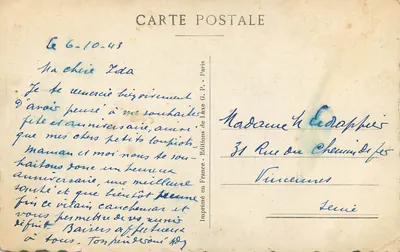 CARTE POSTALE
le 6-10-43
Ma chère Ida
Je te remercie bien
d'avoir pensé à me souhaiter
fête et anniversaire, ainsi
que mes chers petits loupiots.
Maman et moi nous te sou-
haitons donc un heureux
anniversaire, une meilleure
santé et que bientôt
fin ce vilain cauchemar et
vous permettre de vous réunir
Baisers affectueux
à tous.
Imprimé en France - Éditions de Luxe G. P. - Paris
Madame
31 Rue du Chemin de fer
Vincennes
Seine